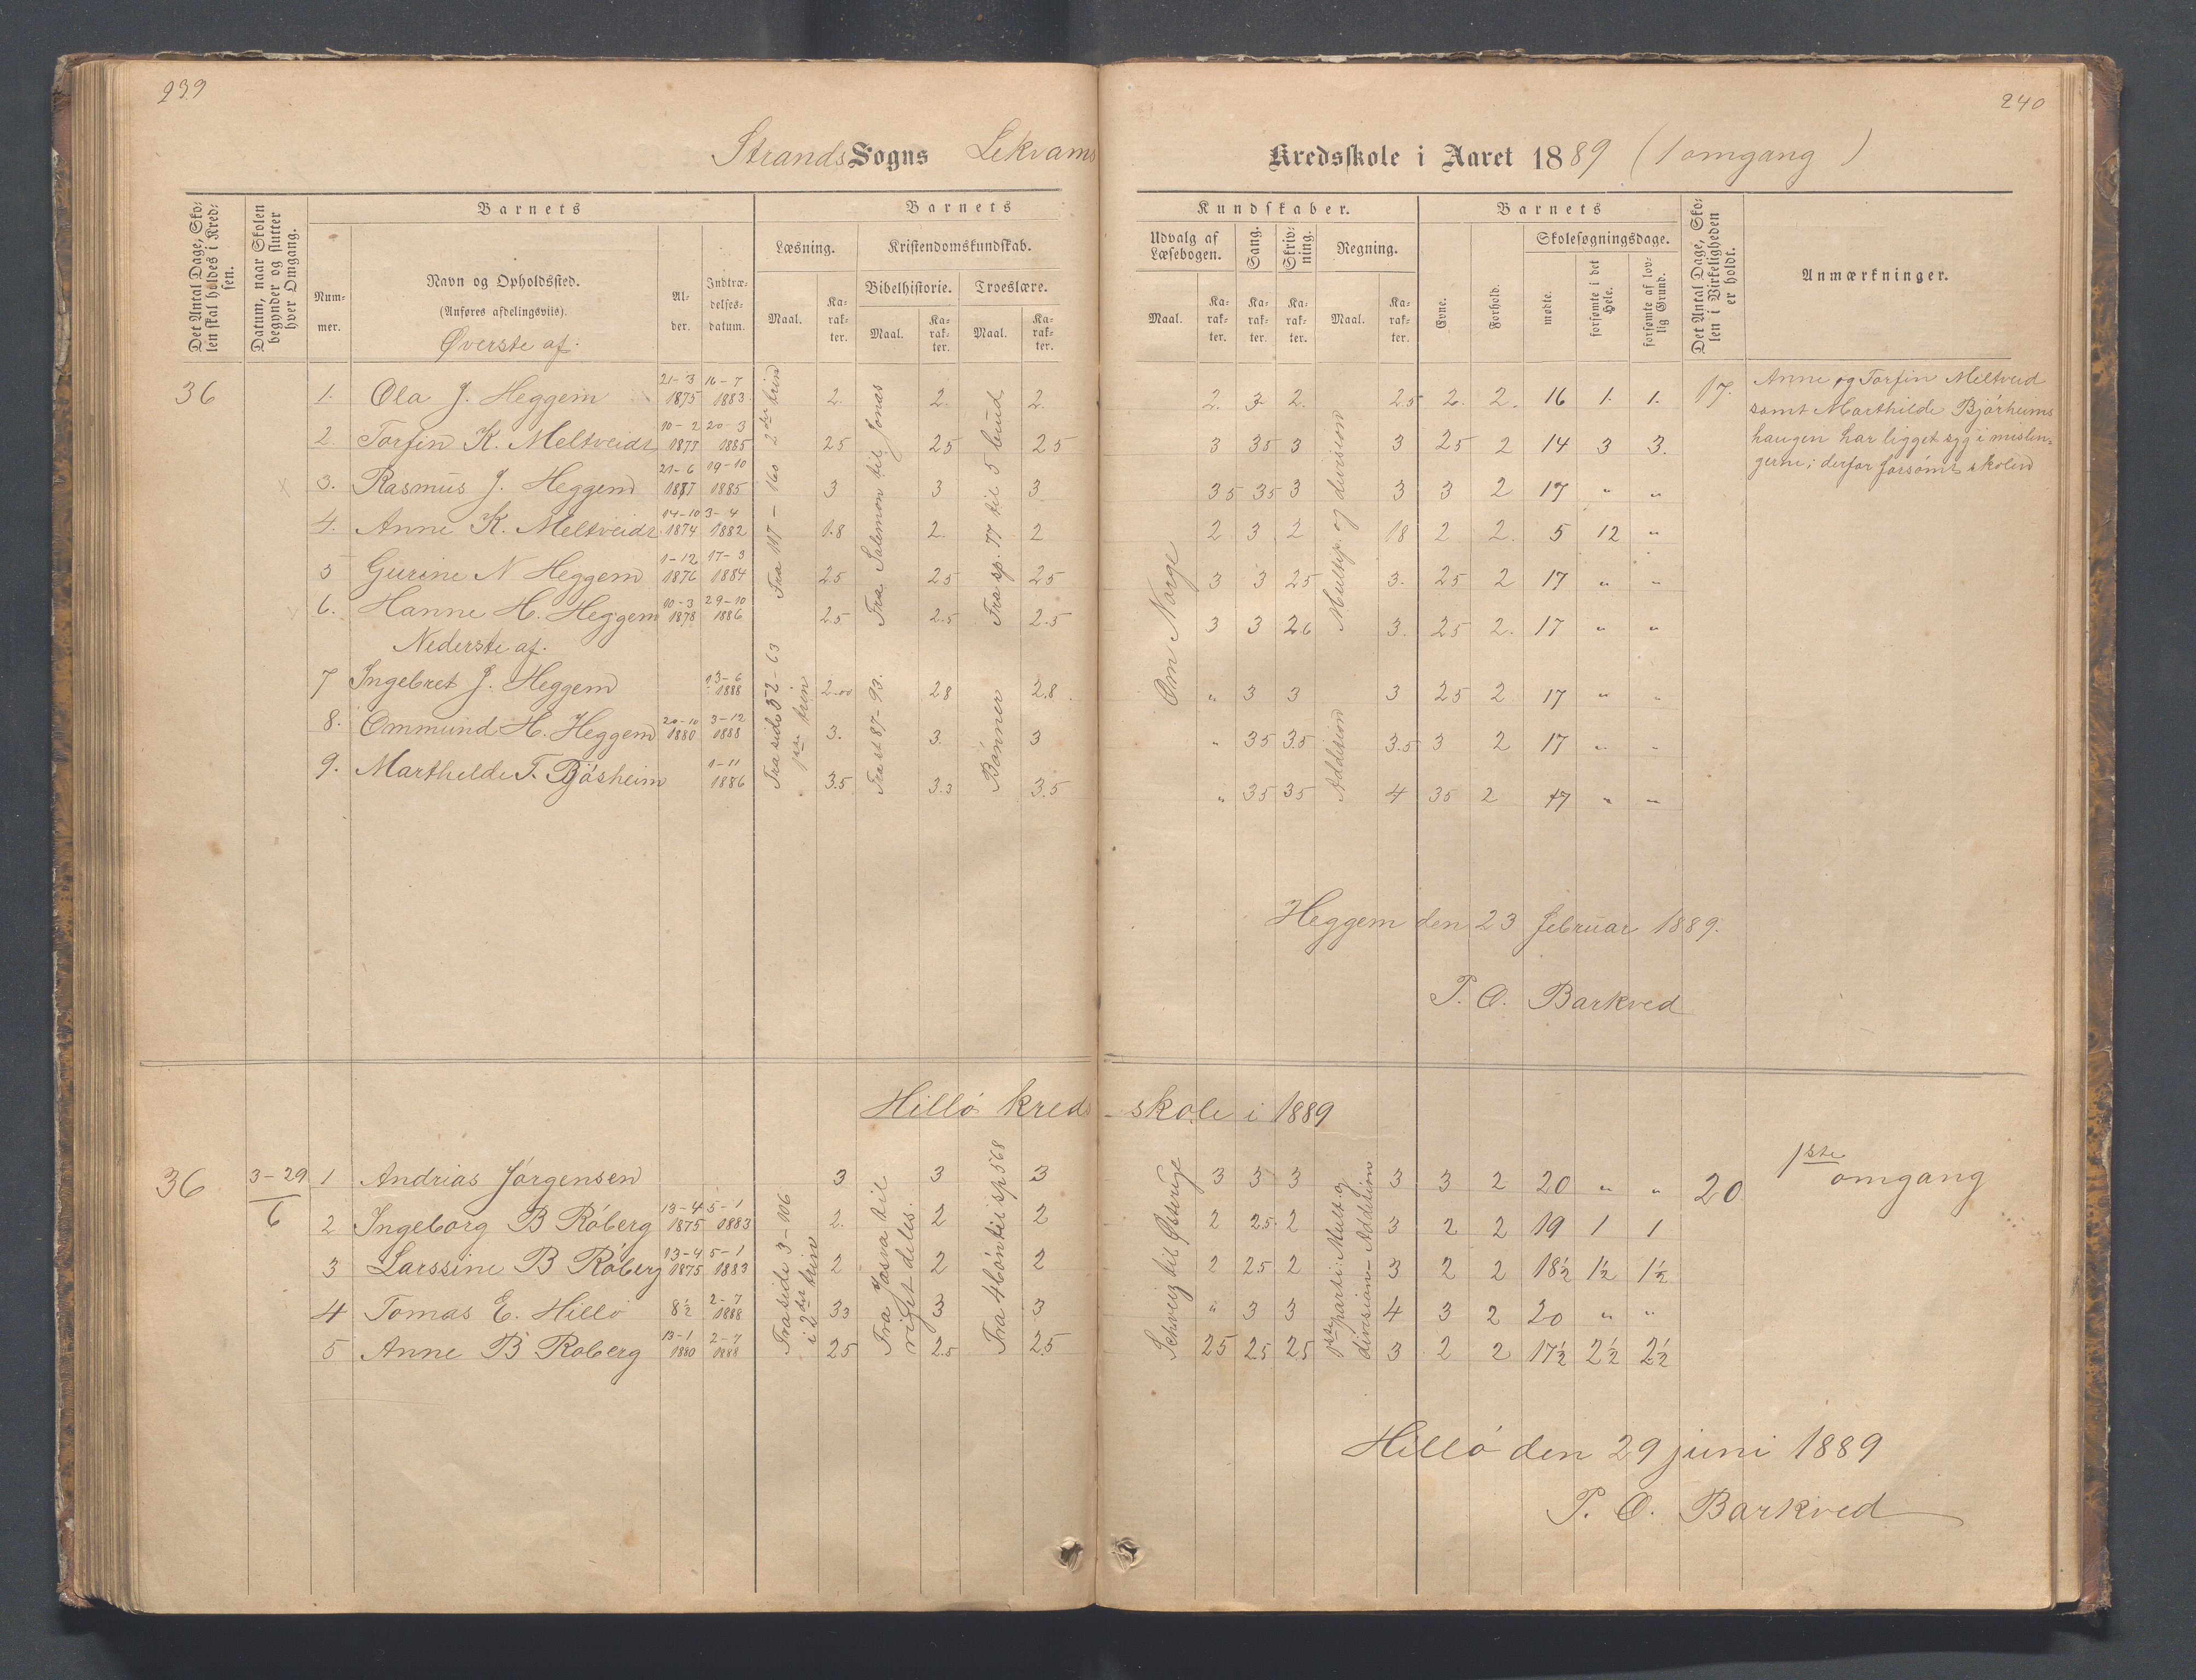 239
240
Strands Sogns Lekvams Kredsskole i Aaret 1889 (1 omgang)
Det Antal Dage, Skolen skal holdes i Kredsen.
Datum, naar Skolen begynder og slutter hver Omgang.
Barnets
Nummer.
Navn og Opholdssted.
(Anføres afdelingsviis).
Alder.
Indtrædelsesdatum.
Barnets Kundskaber.
Læsning.
Maal.
Karakter.
Kristendomskundskab.
Bibelhistorie.
Maal.
Karakter.
Troeslære.
Maal.
Karakter.
Udvalg af Læsebogen.
Maal.
Karakter.
Sang.
Karakter.
Skrivning.
Karakter.
Regning.
Maal.
Karakter.
Barnets
Evne.
Forhold.
Skolesøgningsdage.
mødte.
forsømte i det Hele.
forsømte af lovlig Grund.
Det Antal Dage, Skolen i Virkeligheden er holdt.
Anmærkninger.
Øverste af.
36 1. Ola J. Heggem 21-3 1875 16-7 1883 2. 2. 2. 2. 3 2. 2.5 2. 2. 16 1. 1. 17.
2. Torfin K. Meltveidt 10-2 1877 20-3 1885 25 25 25 3 35 3 3 25 2 14 3 3.
3. Rasmus J. Heggem 21-6 1877 19-10 1885 3 3 3 35 35 3 3 3 2 17 " "
4. Anne K. Meltveidt 14-10 1874 3-4 1882 1.8 2. 2 2 3 2 18 2 2. 5 12 "
5 Gurine N Heggem 1-12 1876 17-3 1884 25 25 25 3 3 25 3. 25 2 17 " "
6. Hanne H. Heggem 10-3 1878 29-10 1886 2.5 2.5 2.5 3 3 26 3. 25 2. 17 " "
Nederste af.
7 Ingebret J. Heggem 13-6 1888 2.00 28 2.8 " 3 3 3 25 2 17 " "
8. Ommund H. Heggem 20-10 1880 3-12 1888 3. 3. 3 " 35 3.5 3.5 3 2 17 " "
9. Marthelde T. Bjösheim 1-11 1886 3.5 3.3 3.5 " 35 35 4 35 2 17 " "
Fra 107 - 160 2det trin
Fra side 52-63
1ste trin
Fra Salemon til Jonas
Fra st 87-93.
Fra sp. 77 til 5 bud
Bönner
Om Norge
Multip. og division
Addition
Anne og Torfin Meltveid
samt Marthilde Bjórheims
haugen har ligget syg i mislin-
gerne; derfor forsömt skolen
Heggem den 23 februar 1889.
P. O. Barkved
Hilló kreds-skole i 1889
36 3-29/6 1 Andrias Jörgensen 3 3 3 3 3 3 3 3 2 20 " " 20 1ste omgang
2 Ingeborg B Róberg 13-4 1875 5-1 1883 2. 2 2 2 2.5 2 3 2 2 19 1 1
3 Larssine B Róberg 13-4 1875 5-1 1883 2 2 2 2 25 2 3 2 2 18½ 1½ 1½
4 Tomas E. Hilló 8½ 2-7 1888 33 3 3 " 3 3 4 3 2 20 " "
5 Anne B Roberg 13-1 1880 2-7 1888 25 2.5 2.5 25 2.5 2.5 3 2 2 17½ 2½ 2½
Fra side 3-106
i 2det trin
Fra Josva til
riget deles.
Fra 4 bön til sp 568
Schveig til Östrige
1ste parti: Mult. og
division - Addition
Hilló den 29 juni 1889
P. O. Barkved